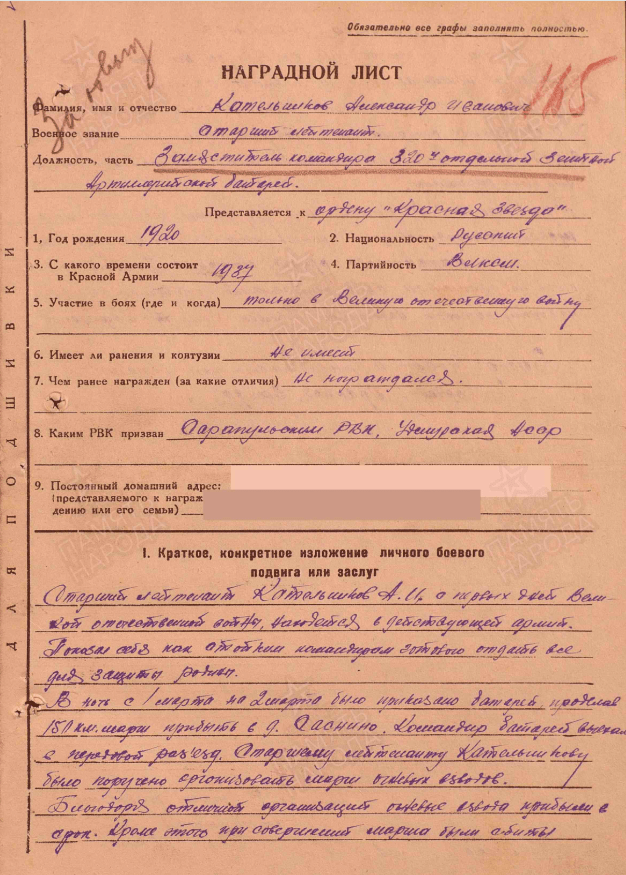 Обязательно все графы заполнять полностью.
За новый
НАГРАДНОЙ ЛИСТ
165
Фамилия, имя и отчество Кательников Александр Иванович
Военное звание Старший лейтенант.
Должность, часть Заместитель командира 320й отдельной Зенитной
Артиллерийской батареи.
Представляется к ордену "Красная Звезда"
1. Год рождения 1920 2. Национальность Русский
3. С какого времени состоит
в Красной Армии 1937 4. Партийность
5. Участие в боях (где и когда) только в Великую отечественную войну
6. Имеет ли ранения и контузии не имеет
7. Чем ранее награжден (за какие отличия) не награждался.
8. Каким РВК призван Сарапульским РВК, Удмурская Асср
9. Постоянный домашний адрес:
(представляемого к награж
дению или его семьи)
ДЛЯ ПОДШИВКИ
I. Краткое, конкретное изложение личного боевого
подвига или заслуг
Старший лейтенант Кательников А.И. с первых дней Вели-
кой отечественной войны, находется в действующей армии.
Показал себя как командиром готового отдать все
для защиты родины.
В ночь с 1 марта на 2 марта было приказано батареи, проделав
150 км. марш прибыть в д. Саснино. Командир батареи выехал
в передовой раз'езд. Старшему лейтенанту Кательникову
было поручено организовать марш огневых взводов.
Благодоря отличной организации огневые взвода прибыли в
срок. Кроме этого при совершении марша были сбиты